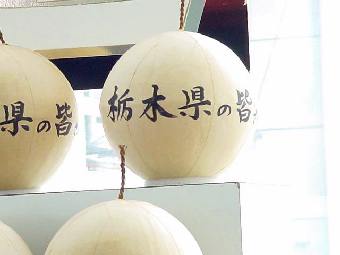 県の皆
栃木県の皆